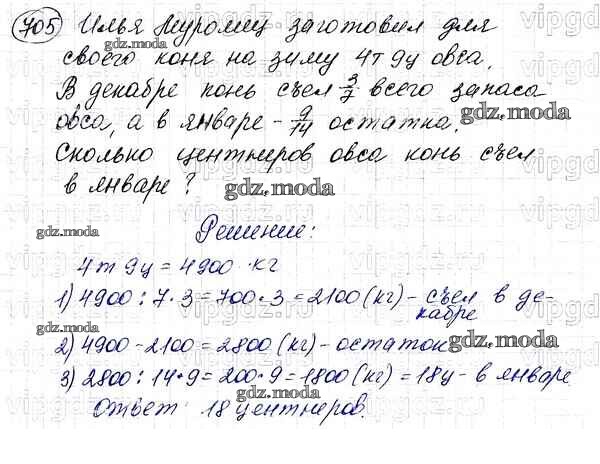 705 Илья Муромец заготовил для
своего коня на зиму 4т 9ц овса.
В декабре конь съел 3/7 всего запаса
овса, а в январе - 9/14 остатка.
Сколько центнеров овса конь съел
в январе?
Решение:
4т 9ц = 4900 кг
1) 4900 : 7 · 3 = 700 · 3 = 2100 (кг) - съел в де-
кабре
2) 4900 - 2100 = 2800 (кг) - остаток
3) 2800 : 14 · 9 = 200 · 9 = 1800 (кг) = 18ц - в январе
Ответ: 18 центнеров.
gdz.moda
gdz.moda
gdz.moda
gdz.moda
gdz.moda
gdz.moda
gdz.moda
gdz.moda